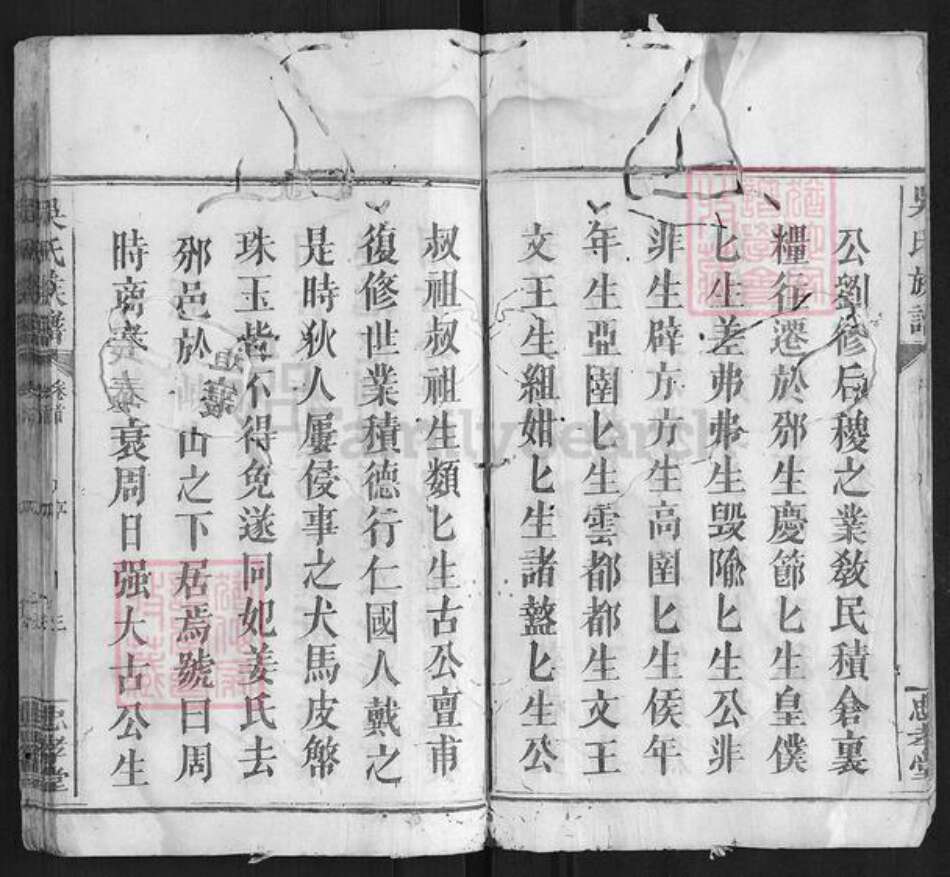 吳氏族譜
忠孝堂
公劉修后稷之業敎民積倉裏
糧往遷於邠生慶節匕生皇僕
匕生差弗弗生毁隃匕生公非
非生辟方方生高圉匕生侯年
年生亞圉匕生雲都都生文王
文王生組妣匕生諸盩匕生公
叔祖叔祖生類匕生古公亶甫
復修世業積德行仁國人戴之
是時狄人屢侵事之犬馬皮幣
珠玉皆不得免遂同妃姜氏去
邠邑於山之下居焉號曰周
時商衰周日强大古公生
吳氏族譜
卷首
三
忠孝堂
FamilySearch